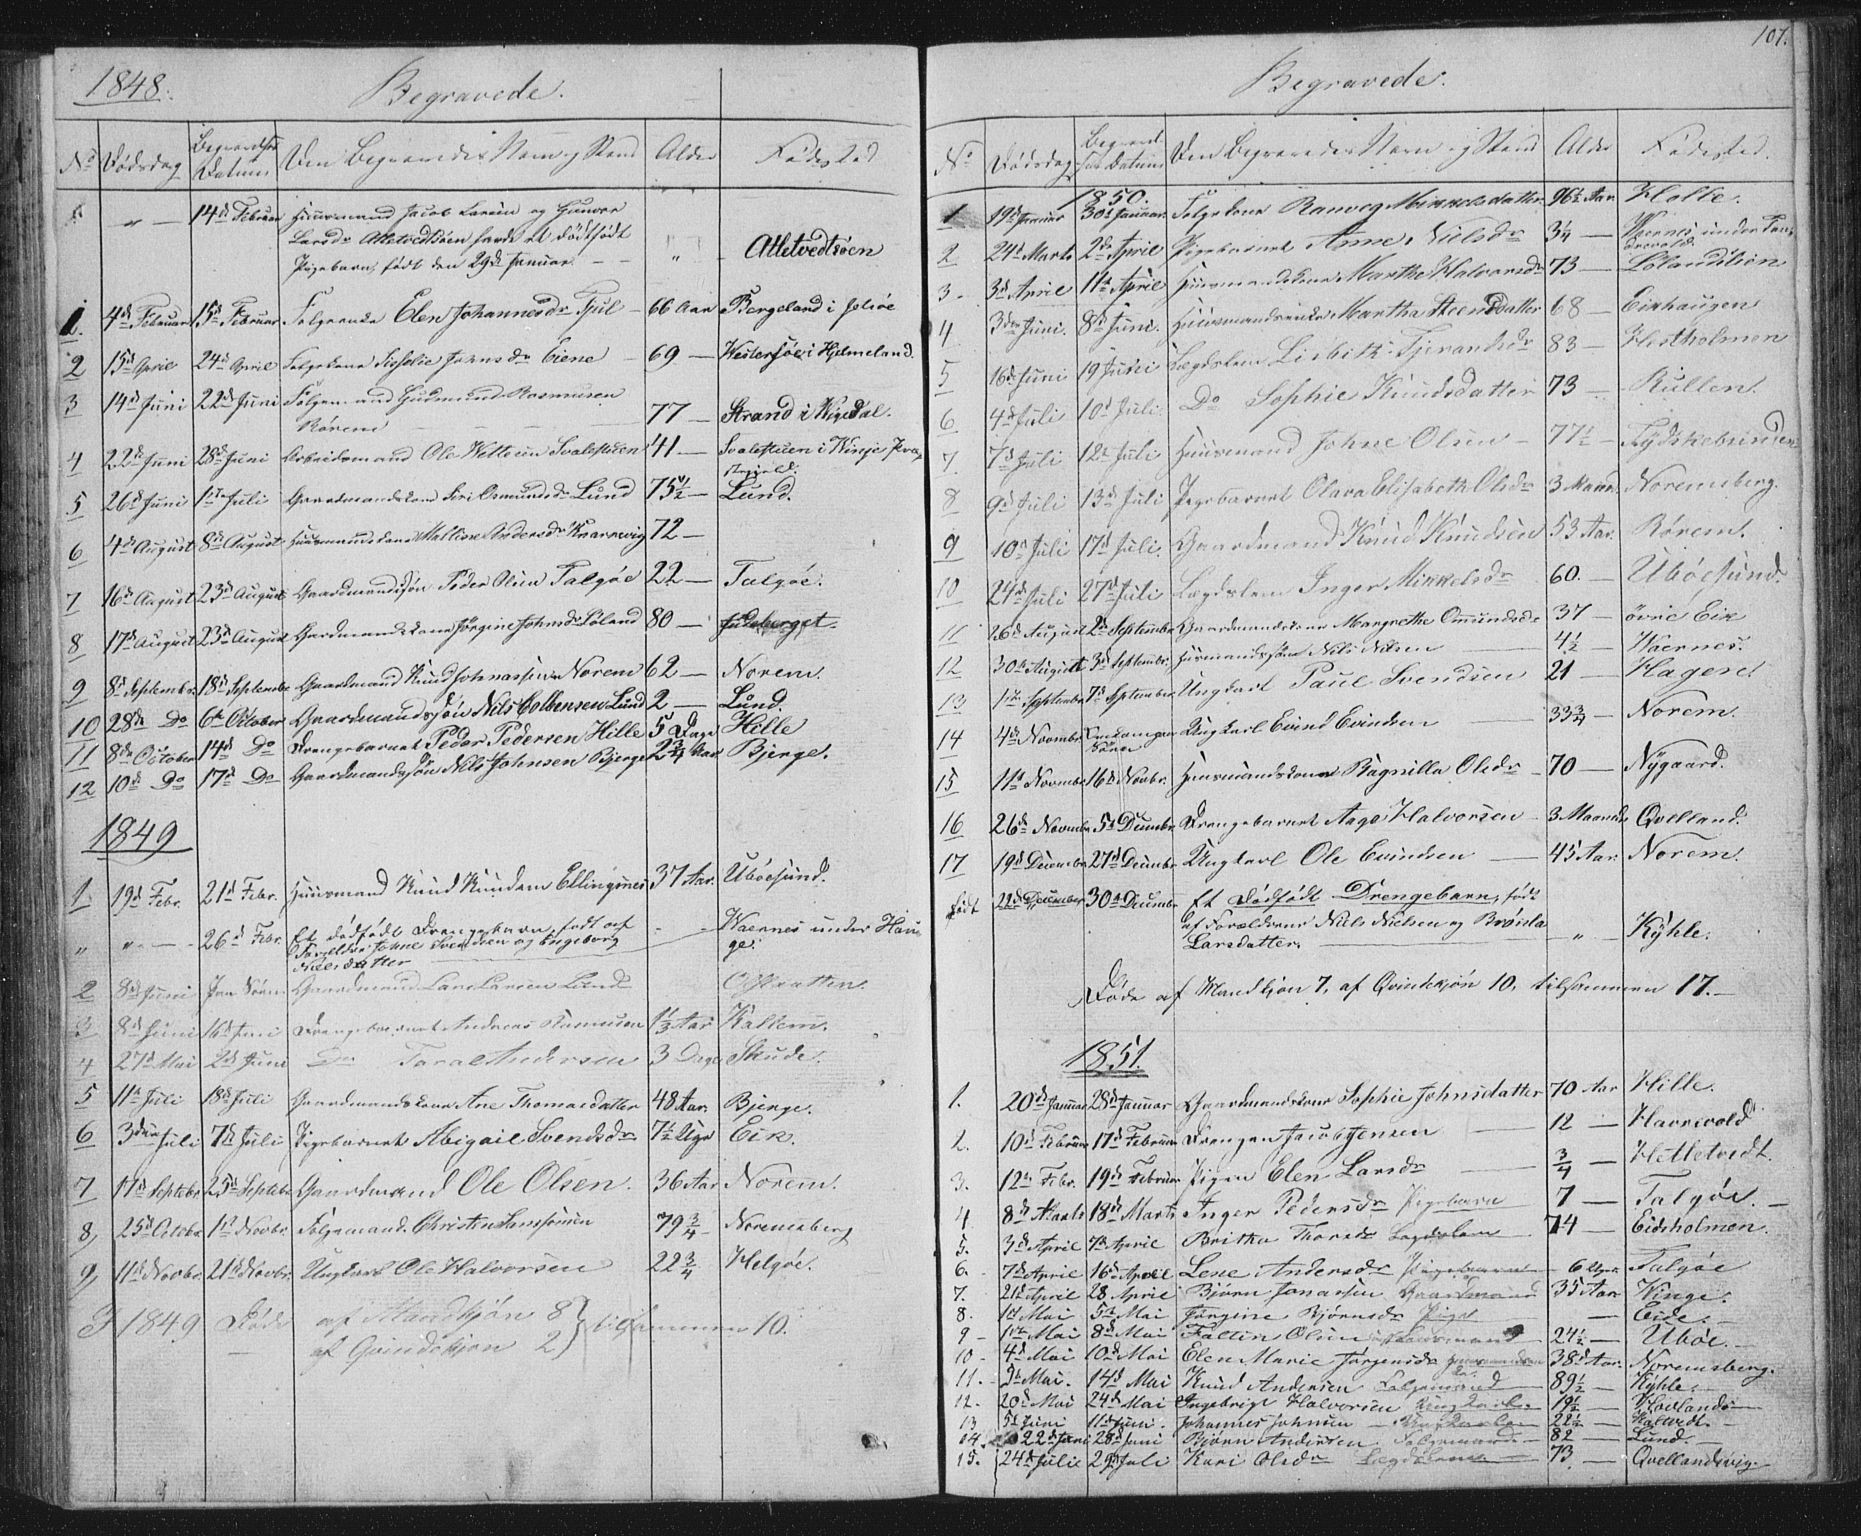 1848.
Begravede.
No Dødsdag Begravelses Datum Den Begravedes Navn og Stand Alder Fødested
" — 14de Februar Huusmand Jacob Larsen og Gunvor
Larsdr Atletvedtsøen havde et dødfødt
Pigebarn, født den 29de Januar — " Atletvedtsøen
1. 4de Februar 15de Februar Folgeenke Elen Johannesdr Fjul — 66 Aar Bergeland i Jelsøe
2 15de April 24de April Folgekone Siselie Johnsdr Eiene — 69 — Westersøe i Hjelmeland.
3 14de Juni 22de Juni Folgemand Gudmund Rasmusen
Rørem — 77 — Strand i Vigedal.
4 22de Juni 28de Juni Arbeidsmand Ole Svalestuen 41 — Svalestuen i Winje Præ-
stegield.
5 26de Juni 1ste Juli Gaardmandskone Siri Osmundsdr Lund 75½ — Lund.
6 4de August 8de August Huusmandskone Mallene Andersdr Knarrevig 72 —
7 16de August 23de August Gaardmandssøn Peder Olsen Talgøe 22 — Talgøe.
8 17de August 23de August Gaardmandskone Jørgine Johnsdr Løland 80 — Judeberget.
9 8de Septembr. 18de Septembr Gaardmand Knud Johnassen Norem 62 — Norem.
10 28de Do 6te October Gaardmandssøn Nils Colbensen Lund 2 — Lund.
11 8de October 14de Do Drengebarnet Peder Pedersen Hille 5 Dage Hille
12 10de Do 17de Do Gaardmandssøn Nils Johnsen Bjerge 2¾ Aar Bjerge.
1849
1. 19de Febr. 21de Febr. Huusmand Knud Knudsen Ellingsnes 37 Aar. Ubøesund.
" " — 26de Febr. Et dødfødt Drengebarn, født af
Forældre Johne Svendsen og Ingeborg
Nilsdatter — Waernes under Hau-
ge.
2 8de Juni Gaardmand Lars Larsen Lund
3 8de Juni 16de Juni Drengebarnet Andreas Rasmusen 1⅓ Aar Kaltem.
4 27de Mai 2de Juni Do Taral Andersen 3 Dage Skude.
5 11te Juli 18de Juli Gaardmandskone Ane Thomasdatter 48 Aar. Bjerge.
6 3die Juli 7de Juli Pigebarnet Abigail Svendsdr 7½ Uge Eik.
7 17de Septebr 25de Septebr Gaardmand Ole Olsen. 36 Aar Norem.
8, 25de Octobr 1ste Novbr. Folgemand Christen Samsonsen 79¾ — Noremsberg
9, 11te Novbr. 21de Novbr. Ungkarl Ole Halvorsen 22¾ Helgøe.
I 1849 Døde af Mandkjøn 8 } tilsammen 10.
— af Qvindekjøn 2
107.
Begravede.
No Dødsdag Begravelses Datum Den Begravedes Navn og Stand Alder Fødested.
1850.
1 19de Januar 30te Januar Folgekone Ranveg Mikkelsdatter 96½ Aar. Holte.
2 24de Marts 2de April Pigebarnet Anne Nielsdr 3¼ — Waernes under Tan-
dervold.
3 - 3de April 11te April Huusmandskone Marthe Halvorsdr 73 — Lølandslien
4 3die Juni. 8de Juni. Huusmandsenke Martha Steensdatter 68 — Eikhaugen
5 16de Juni 19 Juni Lægdslem Lisbith Tjerandsdr 83 — Hestholmen
6 4de Juli 10de Juli. Do Sophie Knudsdatter 73 — Kullen.
7 7de Juli 12te Juli Huusmand Johne Olsen — 77½
8 9de Juli 13de Juli Pigebarnet Olava Elisabeth Olsdr 3 Maan. Noremsberg.
9 10de Juli 17de Juli. Gaardmand Knud Knudsen 53 Aar. Rørem.
10 24de Juli 27de Juli Lægdslem Inger Mikkelsdr 60. — Ubøesund.
11 26de August 2de Septembr Gaardmandskone Margrethe Omundsdr 37 — øvre Eik
12 30te August 3de Septembr. Huusmandssøn Nils Nilsen — 4½ — Waernes.
13 1ste Septembr 7de Septembr Ungkarl Paul Svendsen 21 — Hagene
14 4de Novembr. Omkommen Søen Ungkarl Evind Evindsen — 33¾ — Norem.
15 11te Novembr 16de Novbr. Huusmandskone Ragnilla Olsdr 70 — Nygaard.
16 26de Novembr 5te Decembr Drengebarnet Aage Halvorsen 3 Maaneder Qvelland.
17 19de Decembr 27de Decembr Ungkarl Ole Evindsen — 45 Aar. Norem.
født 22de December 30te Decembr Et Dødfødt Drengebarn, født
af Forældrene Niels Nielsen og
Larsdatter. — " — Kyhle.
Døde af Mandkjøn 7, af Qvindekjøn 10, tilsammen 17. —
1851.
1. 20de Januar 28de Januar Gaardmandskone Sophie Johnsdatter 70 Aar Hille.
2. 10de Februar 17de Februar Drengen Jacob Jensen — 12 — Havrevold
3. 12te Febr. 19de Februar Pigen Elen Larsdr — ¾ — Hetletvedt.
4. 8de Marts 18de Marts Inger Pedersdr Pigebarn 7 — Talgøe. —
5. 3de April 7de April Britha Thorsdr Lægdslem 74 — Eidsholmen.
6. 7de April 16de April Lene Andersdr Pigebarn — 6 Uger. Talgøe
7. 21de April 28 April Bjørn Jonassen Gaardmand 35 Aar Winge.
8. 1ste Mai 5te Mai Jørgine Bjørnsdr Pige — — Eide. —
9 - 1ste Mai 8de Mai Fallin Olsen — 24½ — Ubøe. —
10 - 4de Mai 10de Mai Elen Marie Jørgensdr 38 Aar. Noremsberg.
11. - Mai. 14de Mai Knud Andersen Folgemand 89½ — Kyhle. —
12. 20de Mai 24de Mai Ingebrigt Halvorsen Ungkarl 19½ —
13 5te Juni 11te Juni. Johannes Johnsen — Ungkarl 22½ —
14. 22de Juni 28de Juni Bjørn Andersen Folgemand — 82 — Lund. —
15. 24de Julie 29de Juli Kari Olsdr Lægdslem — 73 — Qvellandsvig. —